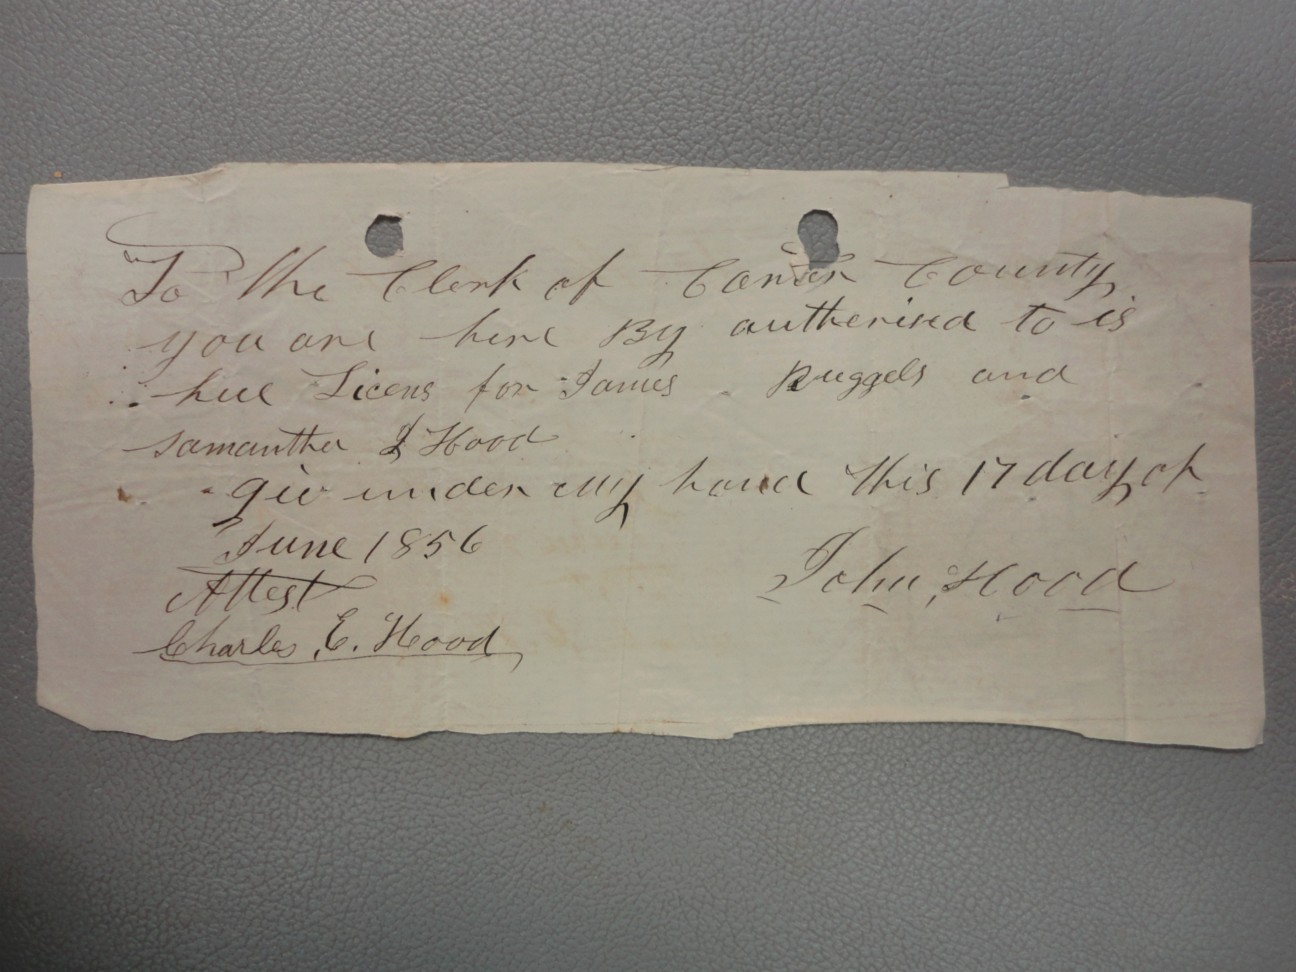 To the Clerk of Carter County
you are here By autherised to is
hue Licens for James Ruggels and
Samantha J Hood
giv under my hand this 17 day of
June 1856
John, Hood
Attest
Charles, E. Hood